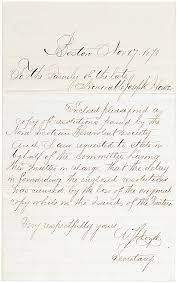 Boston Nov 17th 1873
To the Family of the Late
Honorable Joseph Howe
Enclosed please find a
copy of resolutions passed by the
Nova Scotian Benevolent Society
and I am requested to state in
behalf of the Committee having
this matter in charge that the delay
in forwarding the inclosed resolutions
was caused by the loss of the original
copy while in the hands of the
Very respectfully yours
Secretary